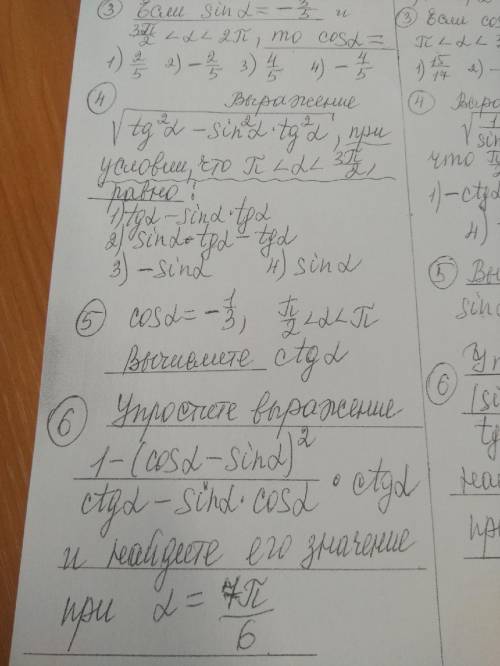 ③ Если sinα = -3/5 и
3π/2 < α < 2π, то cosα =
1) 2/5 2) -2/5 3) 4/5 4) -4/5
④ Выражение
√(tg²α - sin²α · tg²α), при
условии, что π < α < 3π/2,
равно:
1) tgα - sinα · tgα
2) sinα · tgα - tgα
3) -sinα 4) sinα
⑤ cosα = -1/3, π/2 < α < π
Вычислите ctgα
⑥ Упростите выражение
(1 - (cosα - sinα)²)/(ctgα - sinα · cosα) · ctgα
и найдите его значение
при α = 7π/6
③ Если
π < α <
1) 15/17 2) -
④
√(1/sin
что π
1) -ctgα
4) -
⑤
sin
⑥
(si
tg